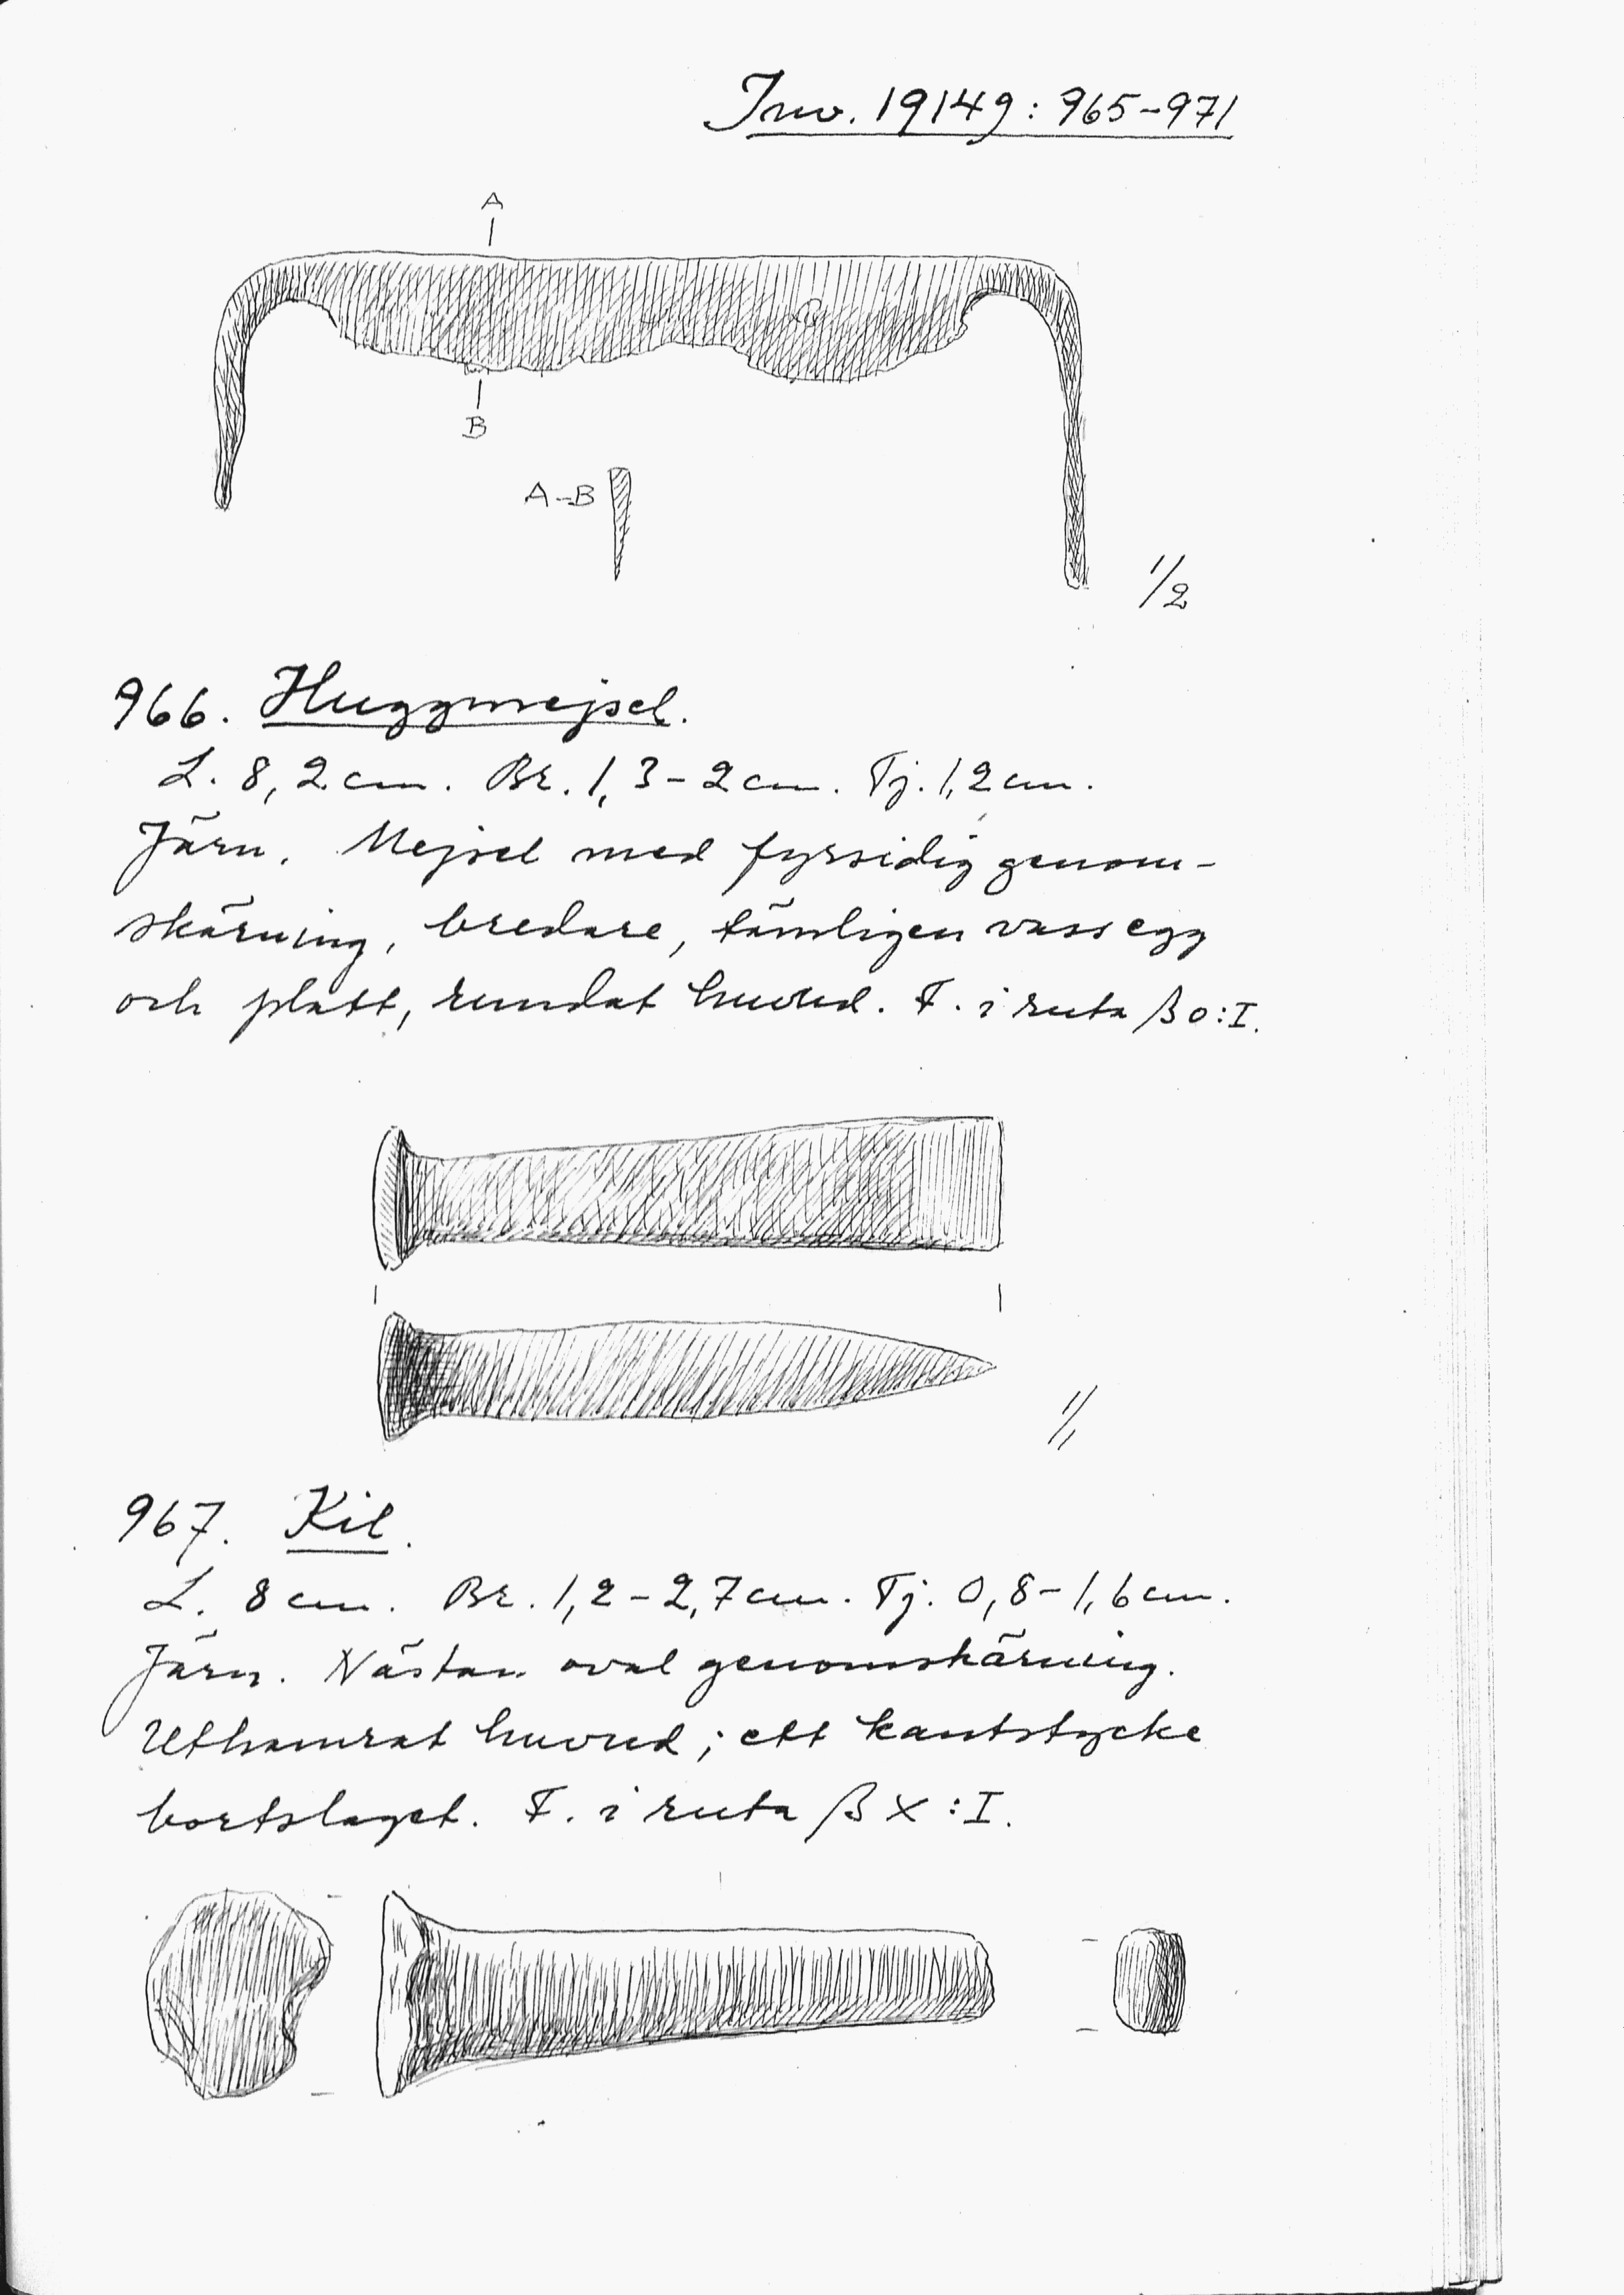 Inv. 19149: 965-971
A
B
A-B
1/2
966. Huggmejsel.
L. 8,2 cm. Br. 1,3-2 cm. Tj. 1,2 cm.
Järn. Mejsel med fyrsidig genom-
skärning, bredare, tämligen vass egg
och platt, rundat huvud. F. i ruta β0:I.
1/1
967. Kil.
L. 8 cm. Br. 1,2-2,7 cm. Tj. 0,8-1,6 cm.
Järn. Nästan oval genomskärning.
Uthamrat huvud; ett kantstycke
bortslaget. F. i ruta βX:I.